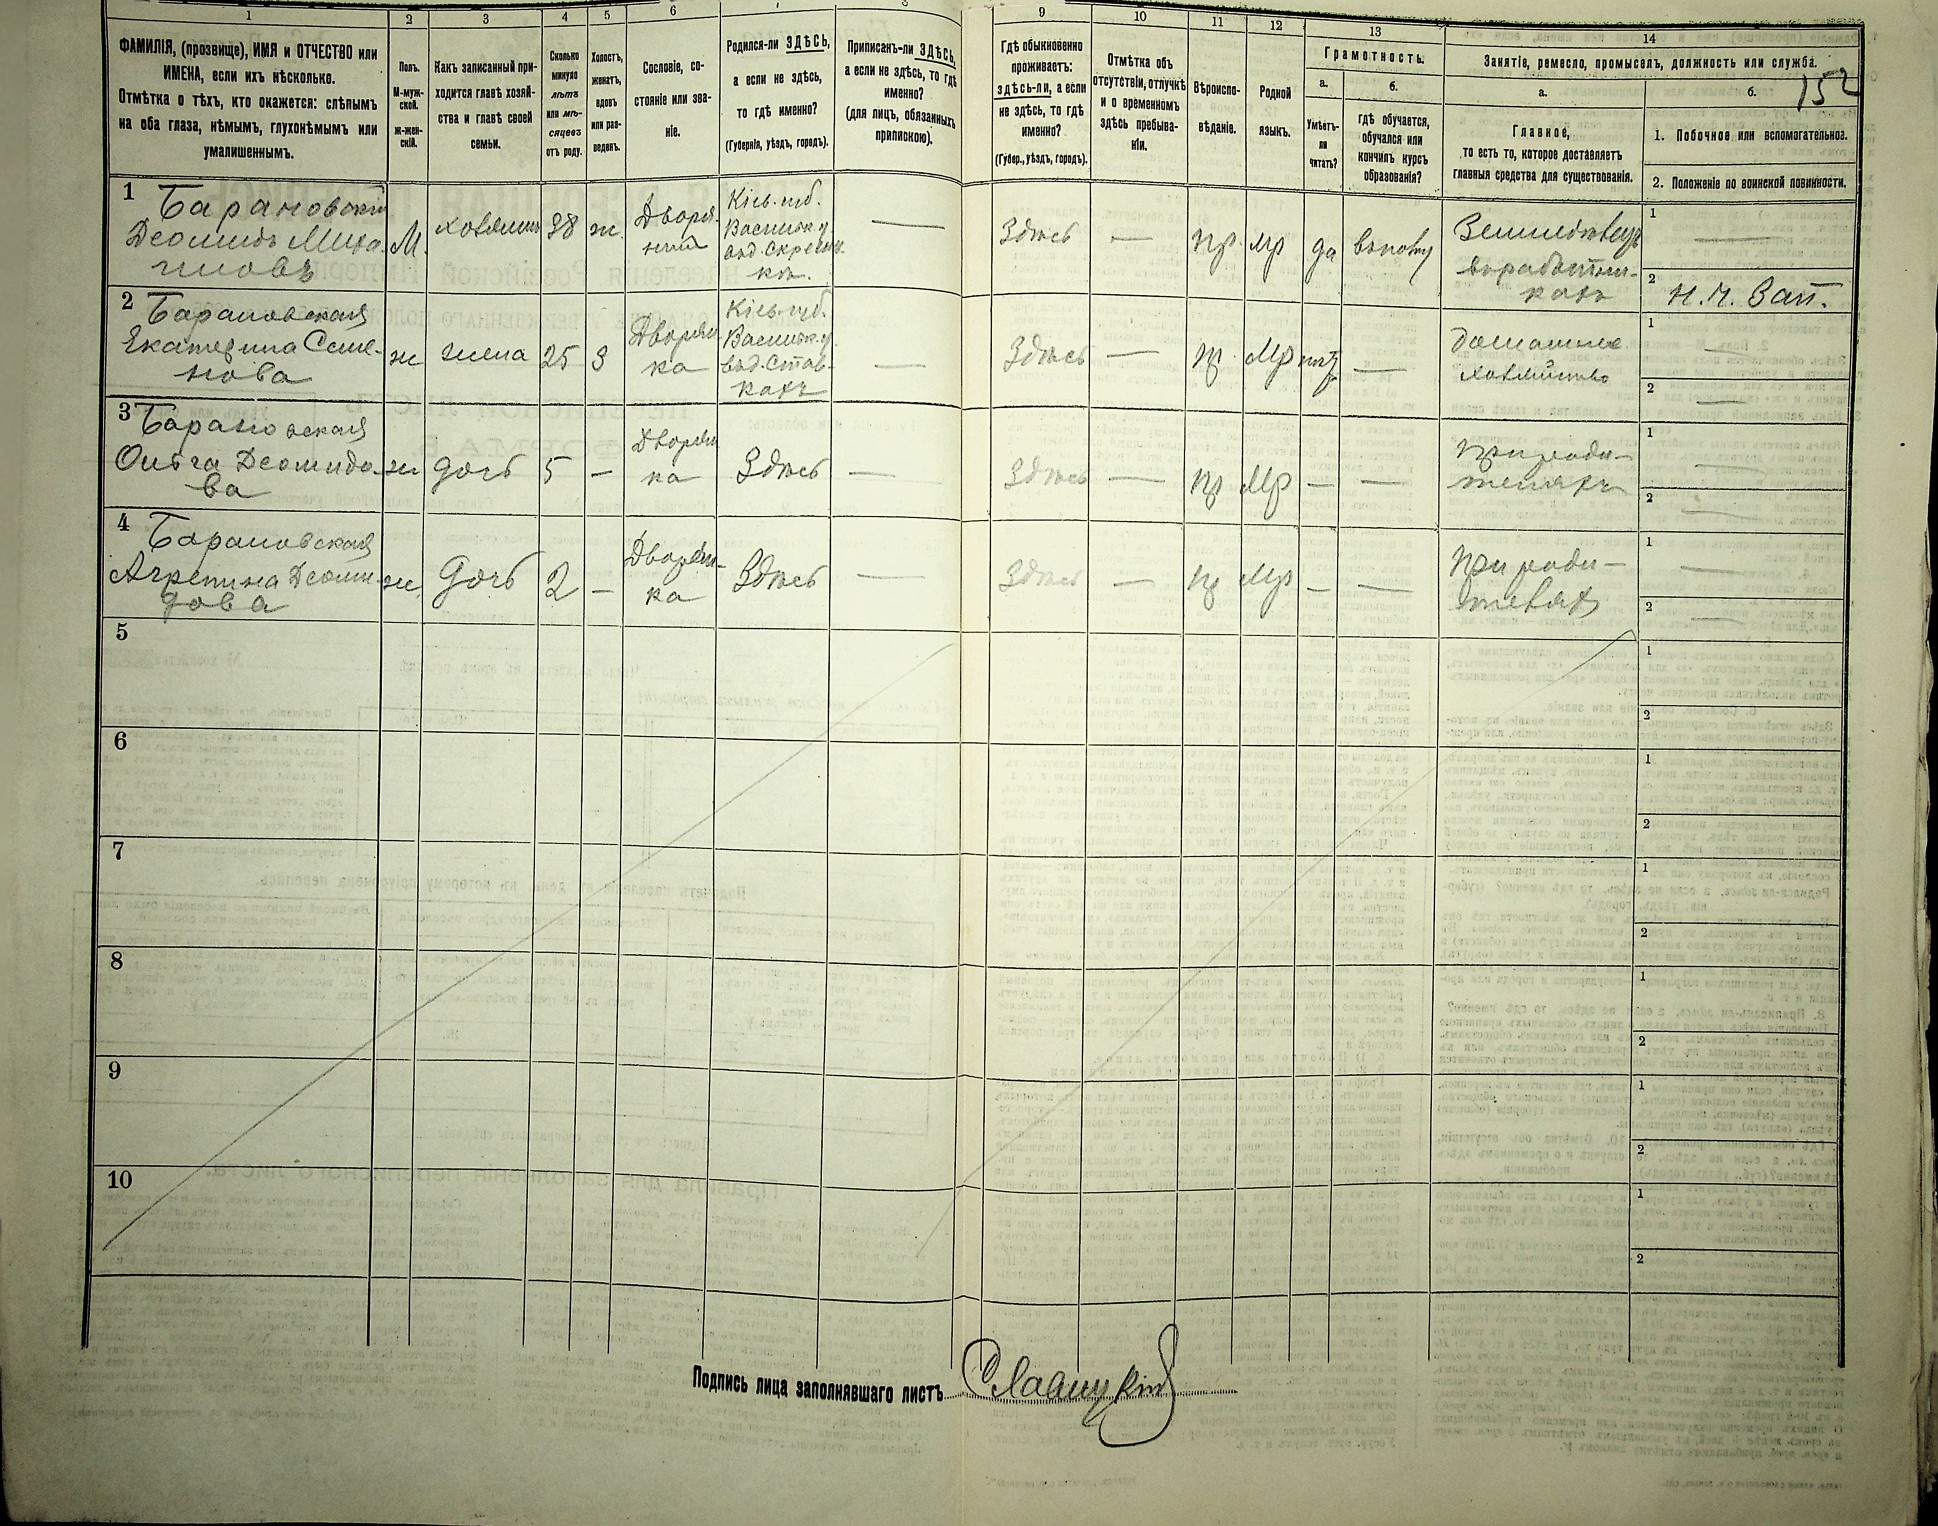 1 2 3 4 5 6 7 8 9 10 11 12 13 14
ФАМИЛІЯ, (прозвище), ИМЯ и ОТЧЕСТВО или
ИМЕНА, если ихъ нѣсколько.
Отмѣтка о тѣхъ, кто окажется: слѣпымъ
на оба глаза, нѣмымъ, глухонѣмымъ или
умалишеннымъ.
Полъ.
М-муж-
ской.
ж-жен-
скій.
Какъ записанный при-
ходится главѣ хозяй-
ства и главѣ своей
семьи.
Сколько
минуло
лѣтъ
или мѣ-
сяцевъ
отъ роду.
Холостъ,
женатъ,
вдовъ
или раз-
веденъ.
Сословіе, со-
стояніе или зва-
ніе.
Родился-ли ЗДѢСЬ,
а если не здѣсь,
то гдѣ именно?
(Губернія, уѣздъ, городъ).
Приписанъ-ли ЗДѢСЬ,
а если не здѣсь, то гдѣ
именно?
(для лицъ, обязанныхъ
припискою).
Гдѣ обыкновенно
проживаетъ:
здѣсь-ли, а если
не здѣсь, то гдѣ
именно?
(Губер., уѣздъ, городъ).
Отмѣтка объ
отсутствіи, отлучкѣ
и о временномъ
здѣсь пребыва-
ніи.
Вѣроиспо-
вѣданіе.
Родной
языкъ.
Грамотность.
а.
Умѣетъ-
ли
читать?
б.
гдѣ обучается,
обучался или
кончилъ курсъ
образованія?
Занятіе, ремесло, промыселъ, должность или служба.
а.
Главное,
то есть то, которое доставляетъ
главныя средства для существованія.
б.
152
1. Побочное или вспомогательное.
2. Положеніе по воинской повинности.
1
Барановскій
Деомидъ Миха-
иловъ
М.
хозяинъ
38
ж.
Дворя-
нинъ
Кіев. губ.
Васильк. у.
Здѣсь
—
пр
Мр
да
Земледѣлецъ
1 —
2 Н. Ч. Зап.
2
Барановская
Екатерина Семе-
нова
ж
жена
25
З
Дворян
ка
Кіев. губ.
Васильк. у.
въ д. Став-
кахъ
—
Здѣсь
—
пр
Мр
нѣтъ
—
Домашнее
хозяйство
1 —
2 —
3
Барановская
Ольга Деомидо-
ва
ж
дочь
5
—
Дворян
ка
Здѣсь
—
Здѣсь
—
пр
Мр
—
—
При роди-
теляхъ
1 —
2 —
4
Барановская
Агрепина Деоми-
дова
ж
Дочь
2
—
Дворян-
ка
Здѣсь
—
Здѣсь
—
пр
Мр
—
—
При роди-
телях
1 —
2 —
5 1
2
6 1
2
7 1
2
8 1
2
9 1
2
10 1
2
Подпись лица заполнявшаго листъ